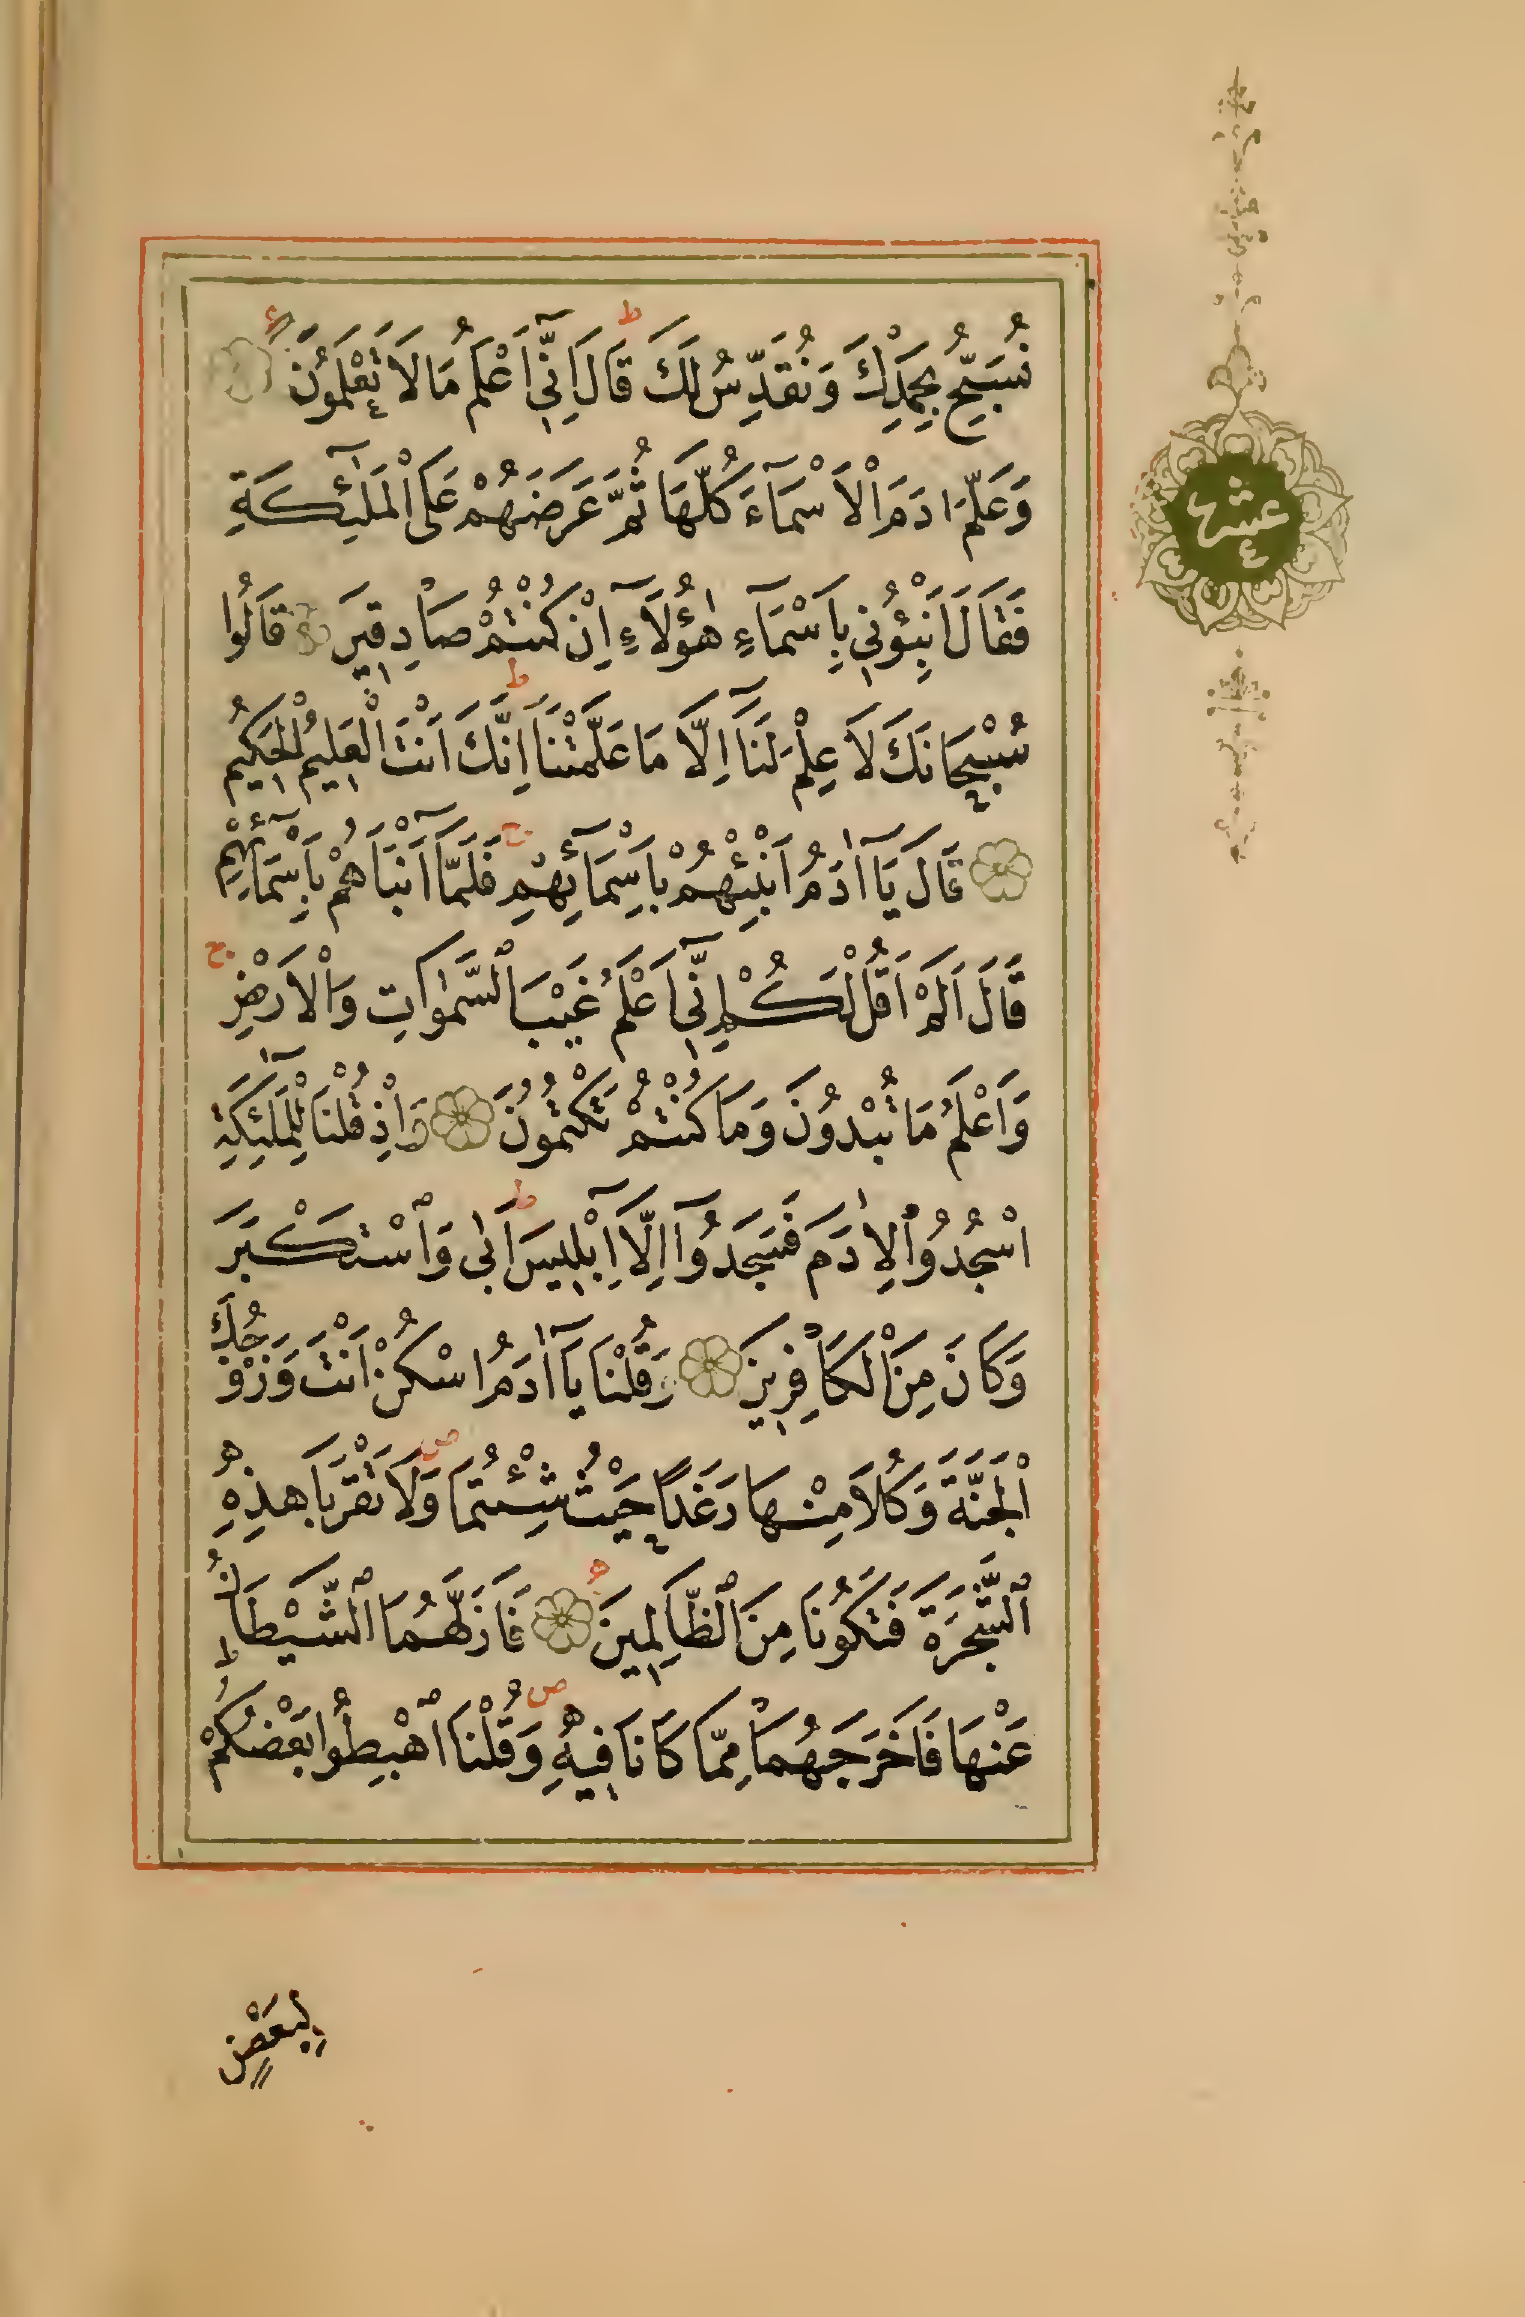 نُسَبِّحُ بِحَمْدِكَ وَنُقَدِّسُ لَكَ ط قَالَ اِنّٓي اَعْلَمُ مَا لَا تَعْلَمُونَ
وَعَلَّمَ اٰدَمَ الْاَسْمَآءَ كُلَّهَا ثُمَّ عَرَضَهُمْ عَلَى الْمَلٰٓئِكَةِ
فَقَالَ اَنْبِؤُنِي بِاَسْمَآءِ هٰؤُلَآءِ اِنْ كُنْتُمْ صَادِقِينَ قَالُوا
سُبْحَانَكَ لَا عِلْمَ لَنَآ اِلَّا مَا عَلَّمْتَنَا ط اِنَّكَ اَنْتَ الْعَلِيمُ الْحَكِيمُ
قَالَ يَآ اٰدَمُ اَنْبِئْهُمْ بِاَسْمَآئِهِمْ ج فَلَمَّآ اَنْبَاَهُمْ بِاَسْمَآئِهِمْ
قَالَ اَلَمْ اَقُلْ لَكُمْ اِنّٓي اَعْلَمُ غَيْبَ السَّمٰوَاتِ وَالْاَرْضِ ج
وَاَعْلَمُ مَا تُبْدُونَ وَمَا كُنْتُمْ تَكْتُمُونَ وَاِذْ قُلْنَا لِلْمَلٰٓئِكَةِ
اسْجُدُوا لِاٰدَمَ فَسَجَدُوآ اِلَّآ اِبْلِيسَ ط اَبٰى وَاسْتَكْبَرَ
وَكَانَ مِنَ الْكَافِرِينَ وَقُلْنَا يَآ اٰدَمُ اسْكُنْ اَنْتَ وَزَوْجُكَ
الْجَنَّةَ وَكُلَا مِنْهَا رَغَدًا حَيْثُ شِئْتُمَا ص وَلَا تَقْرَبَا هٰذِهِ
الشَّجَرَةَ فَتَكُونَا مِنَ الظَّالِمِينَ فَاَزَلَّهُمَا الشَّيْطَانُ
عَنْهَا فَاَخْرَجَهُمَا مِمَّا كَانَا فِيهِ ص وَقُلْنَا اهْبِطُوا بَعْضُكُمْ
لِبَعْضٍ
عشر